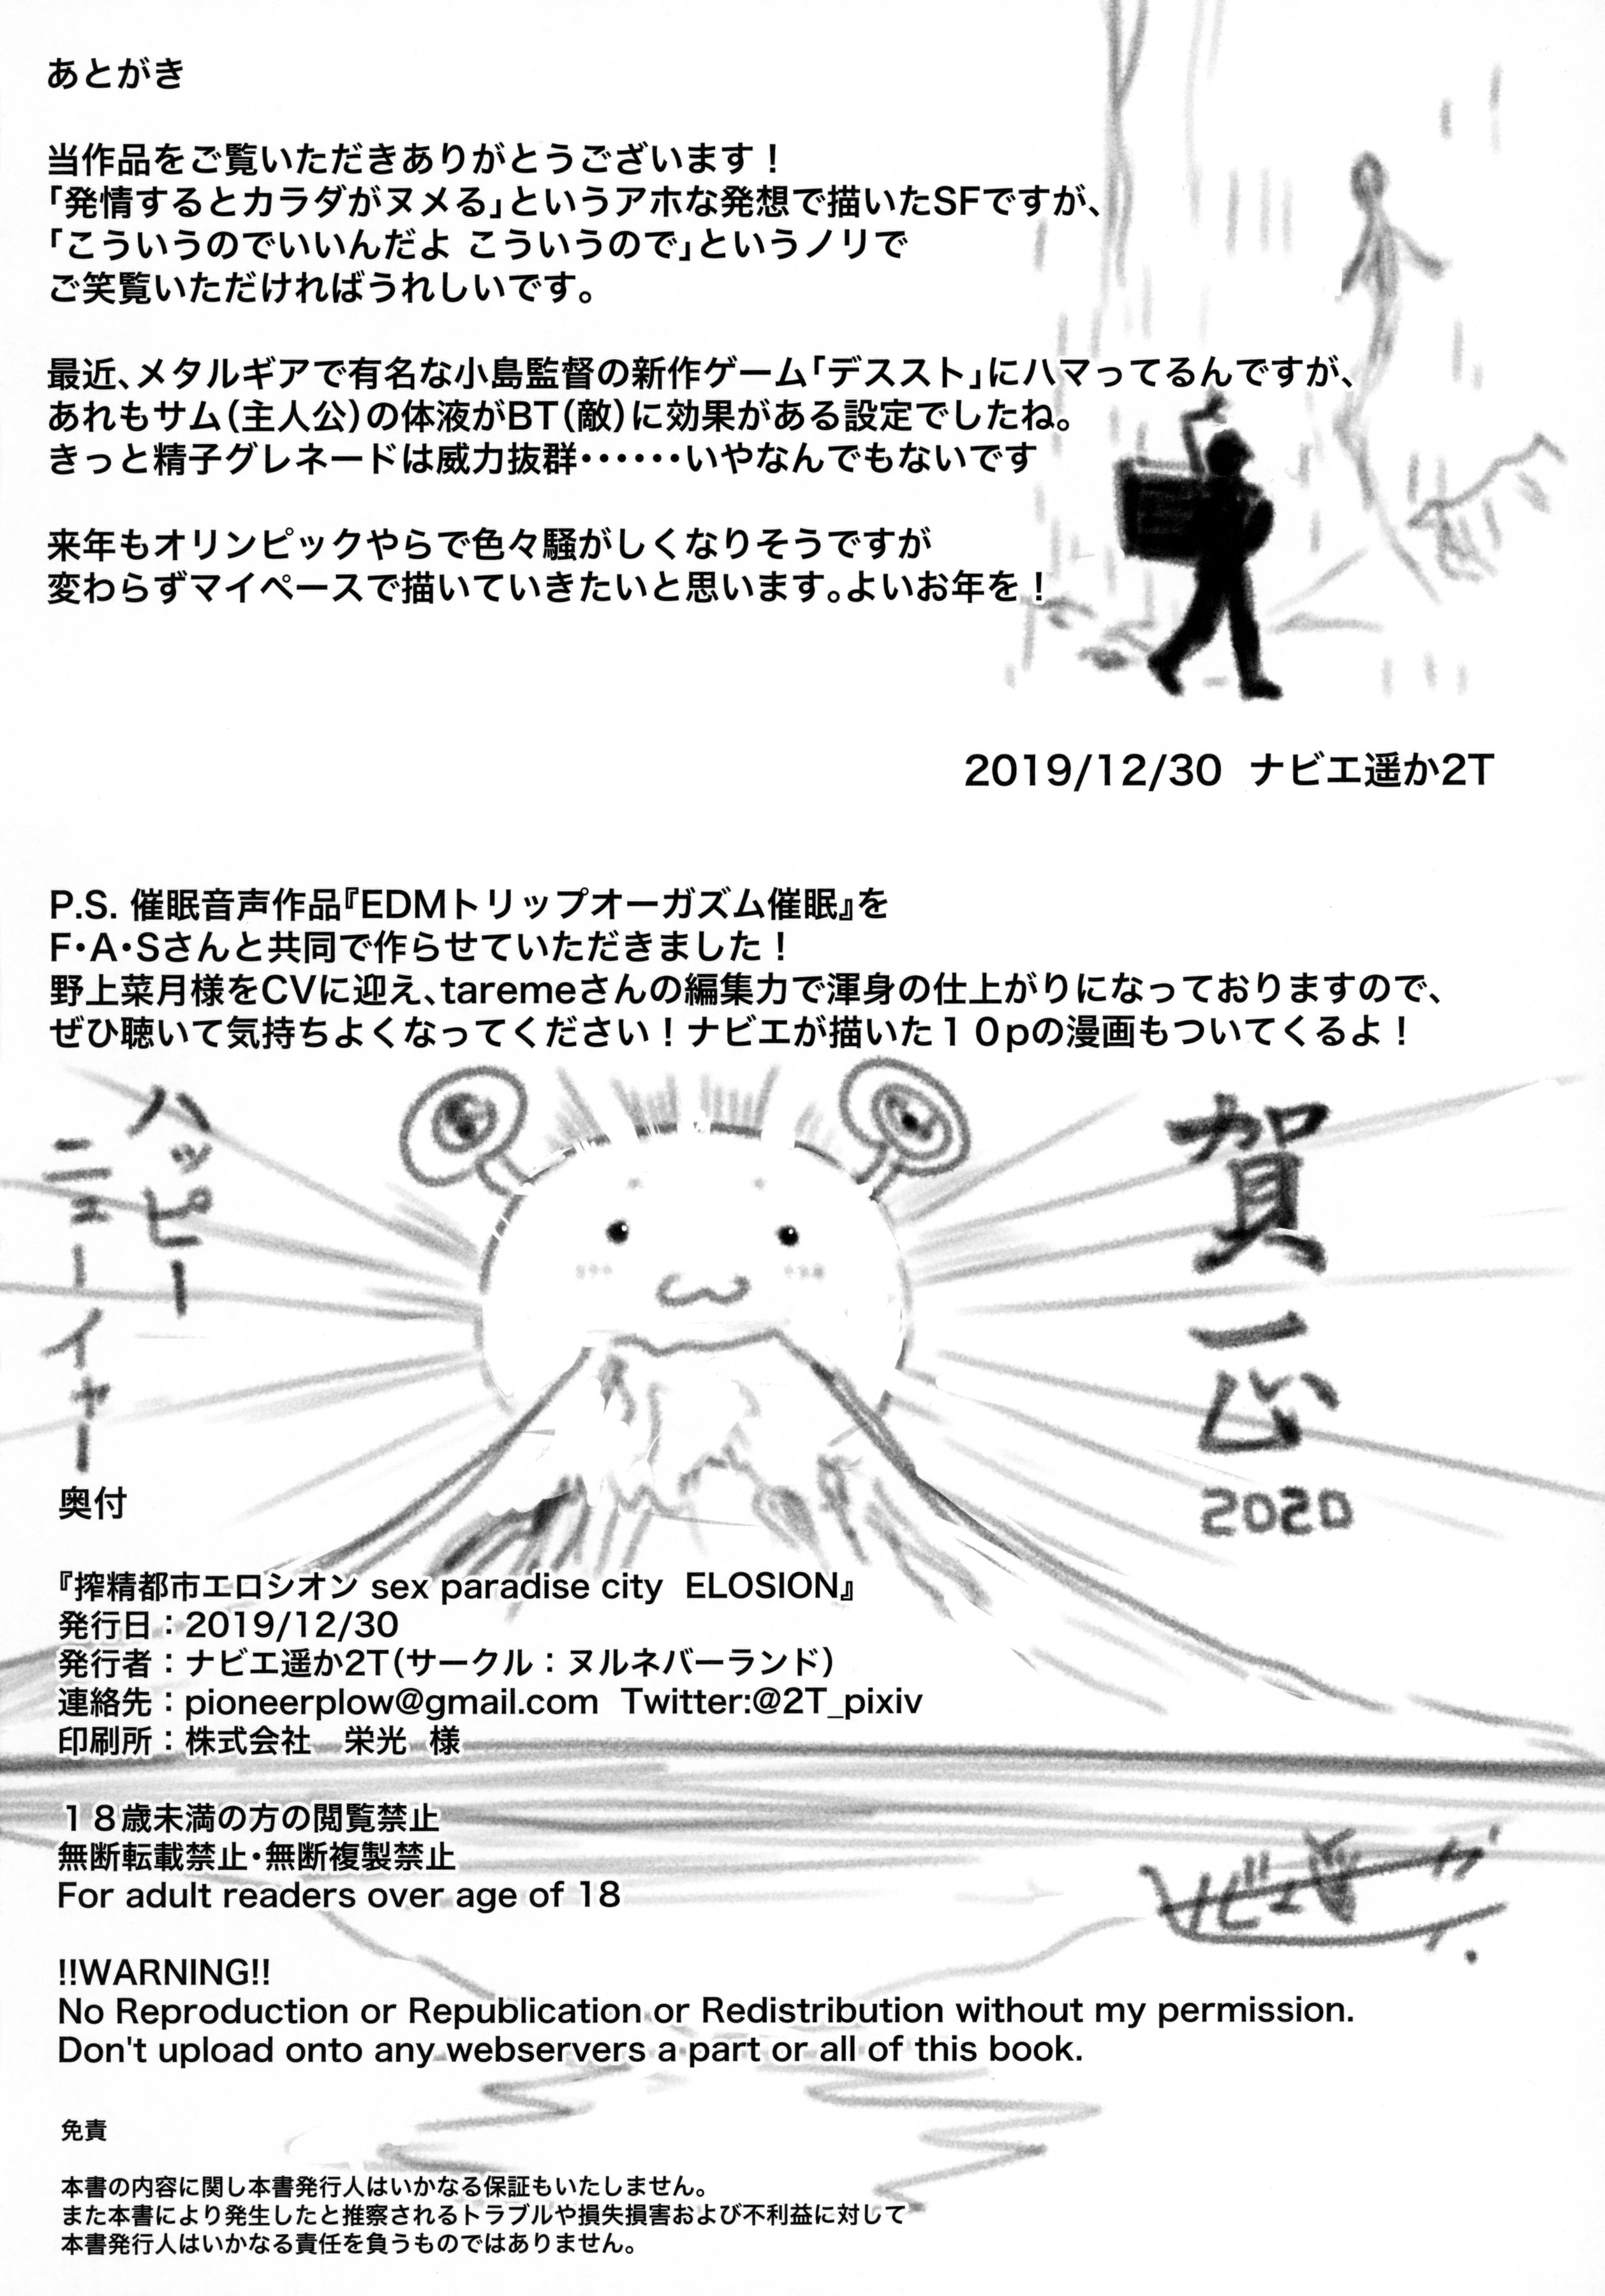 あとがき
当作品をご覧いただきありがとうございます！
「発情するとカラダがヌメる」というアホな発想で描いたSFですが、
「こういうのでいいんだよ こういうので」というノリで
ご笑覧いただければうれしいです。
最近、メタルギアで有名な小島監督の新作ゲーム「デススト」にハマってるんですが、
あれもサム（主人公）の体液がBT（敵）に効果がある設定でしたね。
きっと精子グレネードは威力抜群‥‥‥いやなんでもないです
来年もオリンピックやらで色々騒がしくなりそうですが
変わらずマイペースで描いていきたいと思います。よいお年を！
2019/12/30 ナビエ遥か2T
P.S. 催眠音声作品『EDMトリップオーガズム催眠』を
F・A・Sさんと共同で作らせていただきました！
野上菜月様をCVに迎え、taremeさんの編集力で渾身の仕上がりになっておりますので、
ぜひ聴いて気持ちよくなってください！ナビエが描いた１０pの漫画もついてくるよ！
賀正
2020
ハッピー
ニューイヤー
奥付
『搾精都市エロシオン sex paradise city ELOSION』
発行日：2019/12/30
発行者：ナビエ遥か2T（サークル：ヌルネバーランド）
連絡先：pioneerplow@gmail.com Twitter:@2T_pixiv
印刷所：株式会社　栄光 様
１８歳未満の方の閲覧禁止
無断転載禁止・無断複製禁止
For adult readers over age of 18
!!WARNING!!
No Reproduction or Republication or Redistribution without my permission.
Don't upload onto any webservers a part or all of this book.
免責
本書の内容に関し本書発行人はいかなる保証もいたしません。
また本書により発生したと推察されるトラブルや損失損害および不利益に対して
本書発行人はいかなる責任を負うものではありません。